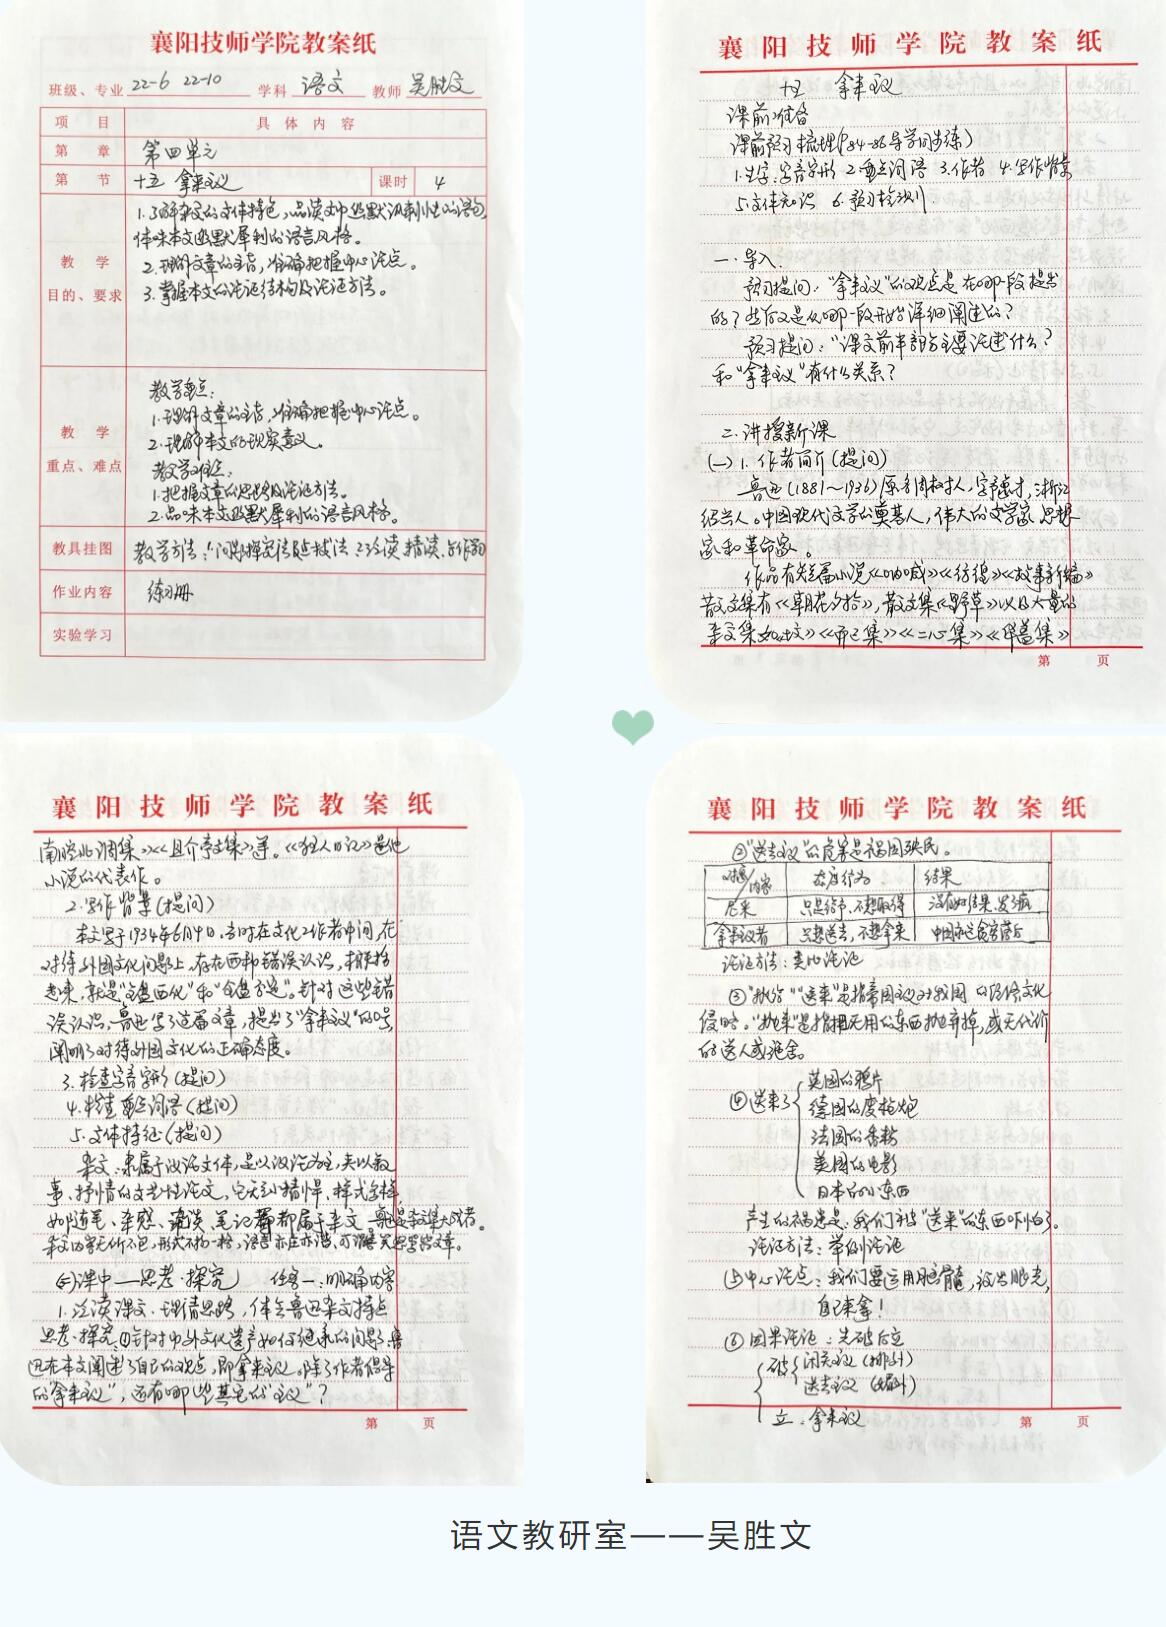 襄阳技师学院教案纸
班级、专业 22-6 22-10 学科 语文 教师 吴胜文
项 目 具 体 内 容
第 章 第四单元
第 节 十五 拿来主义 课时 4
教 学
目的、要求
1.了解杂文的文体特色，品读文中幽默讽刺性的语句，
体味本文幽默犀利的语言风格。
2.理解文章的主旨，准确把握中心论点。
3.掌握本文的论证结构及论证方法。
教 学
重点、难点
教学重点：
1.理解文章的主旨，准确把握中心论点。
2.理解本文的现实意义。
教学难点：
1.把握文章的思路及论证方法。
2.品味本文幽默犀利的语言风格。
教具挂图 教学方法：1.问题探究法 点拨法 2.泛读、精读、写作
作业内容 练习册
实验学习
襄阳技师学院教案纸
十五 拿来主义
课前准备
课前预习梳理(P84-86导学同步练)
1.生字：字音字形 2.重点词语 3.作者 4.写作背景
5.文体知识 6.预习检测
一.导入.
预习提问："拿来主义"的观点是在哪一段提出
的？然后又是从哪一段开始详细阐述的？
预习提问："课文前半部分主要论述什么？
和"拿来主义"有什么关系？
二.讲授新课
(一)1.作者简介(提问)
鲁迅(1881~1936)原名周树人，字豫才，浙江
绍兴人。中国现代文学的奠基人，伟大的文学家 思想
家和革命家。
作品有短篇小说《呐喊》《彷徨》《故事新编》
散文集有《朝花夕拾》，散文集《野草》以及大量的
杂文集如《坟》《而已集》《二心集》《华盖集》
第 页
襄阳技师学院教案纸
南腔北调集》《且介亭文集》等。《狂人日记》是他
小说的代表作。
2.写作背景(提问)
本文写于1934年6月4日，当时在文化工作者中间，在
对待外国文化问题上，存在两种错误认识，概括
起来，就是"全盘西化"和"全盘否定"。针对这些错
误认识，鲁迅写了这篇文章，提出了"拿来主义"的口号，
阐明了对待外国文化的正确态度。
3.检查字音字形(提问)
4.检查重点词语(提问)
5.文体特征(提问)
杂文：隶属于议论文体，是以议论为主，夹以叙
事、抒情的文艺性论文，它短小精悍，样式多样，
如随笔、杂感、笔记等都属于杂文 鲁迅是杂文集大成者。
杂文内容无所不包，形式不拘一格，语言亦庄亦谐
(二)课中——思考·探究 任务一：明确内容
1.泛读课文，理清思路，体会鲁迅杂文特点
思考·探究①针对中外文化遗产如何继承的问题，鲁
迅在本文阐述了自己的观点，即拿来主义。除了作者倡导
的"拿来主义"，还有哪些其它的"主义"？
第 页
襄阳技师学院教案纸
②"送去主义"的危害是祸国殃民。
对象/内容 态度行为 结果
尼采 只是给予，不想取得 没有好结果，发了疯
拿来主义者 只想送去，不想拿来 中国永远贫穷落后
论证方法：类比论证
③"抛给""送来"是指帝国主义对我国的经济文化
侵略。"抛来"是指把无用的东西抛弃掉，或无代价
的送人或施舍。
④送来了
英国的鸦片
德国的废枪炮
法国的香粉
美国的电影
日本的小东西
产生的祸患是：我们被"送来"的东西吓怕了。
论证方法：举例论证
⑤中心论点：我们要运用脑髓，放出眼光，
自己来拿！
⑥因果论证：先破后立
破 闭关主义(排外)
送去主义(媚外)
立：拿来主义
第 页
语文教研室——吴胜文